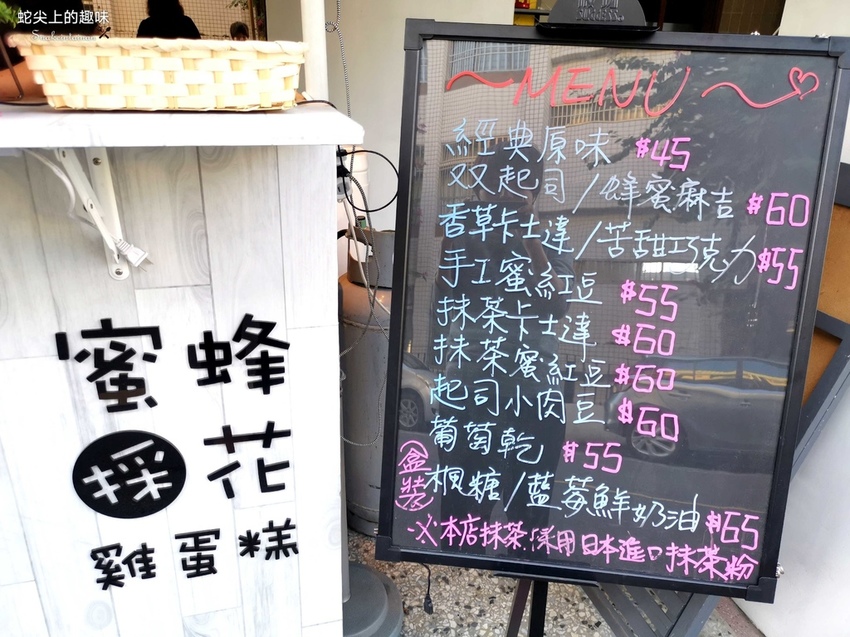 蛇尖上的趣味
MENU
經典原味 $45
双起司/蜂蜜麻吉 $60
香草卡士達/苦甜巧克力 $55
手工蜜紅豆 $55
抹茶卡士達 $60
抹茶蜜紅豆 $60
起司小肉豆 $60
葡萄乾 $55
(盒裝)楓糖/藍莓鮮奶油 $65
※本店抹茶採用日本進口抹茶粉
蜜蜂
採花
雞蛋糕